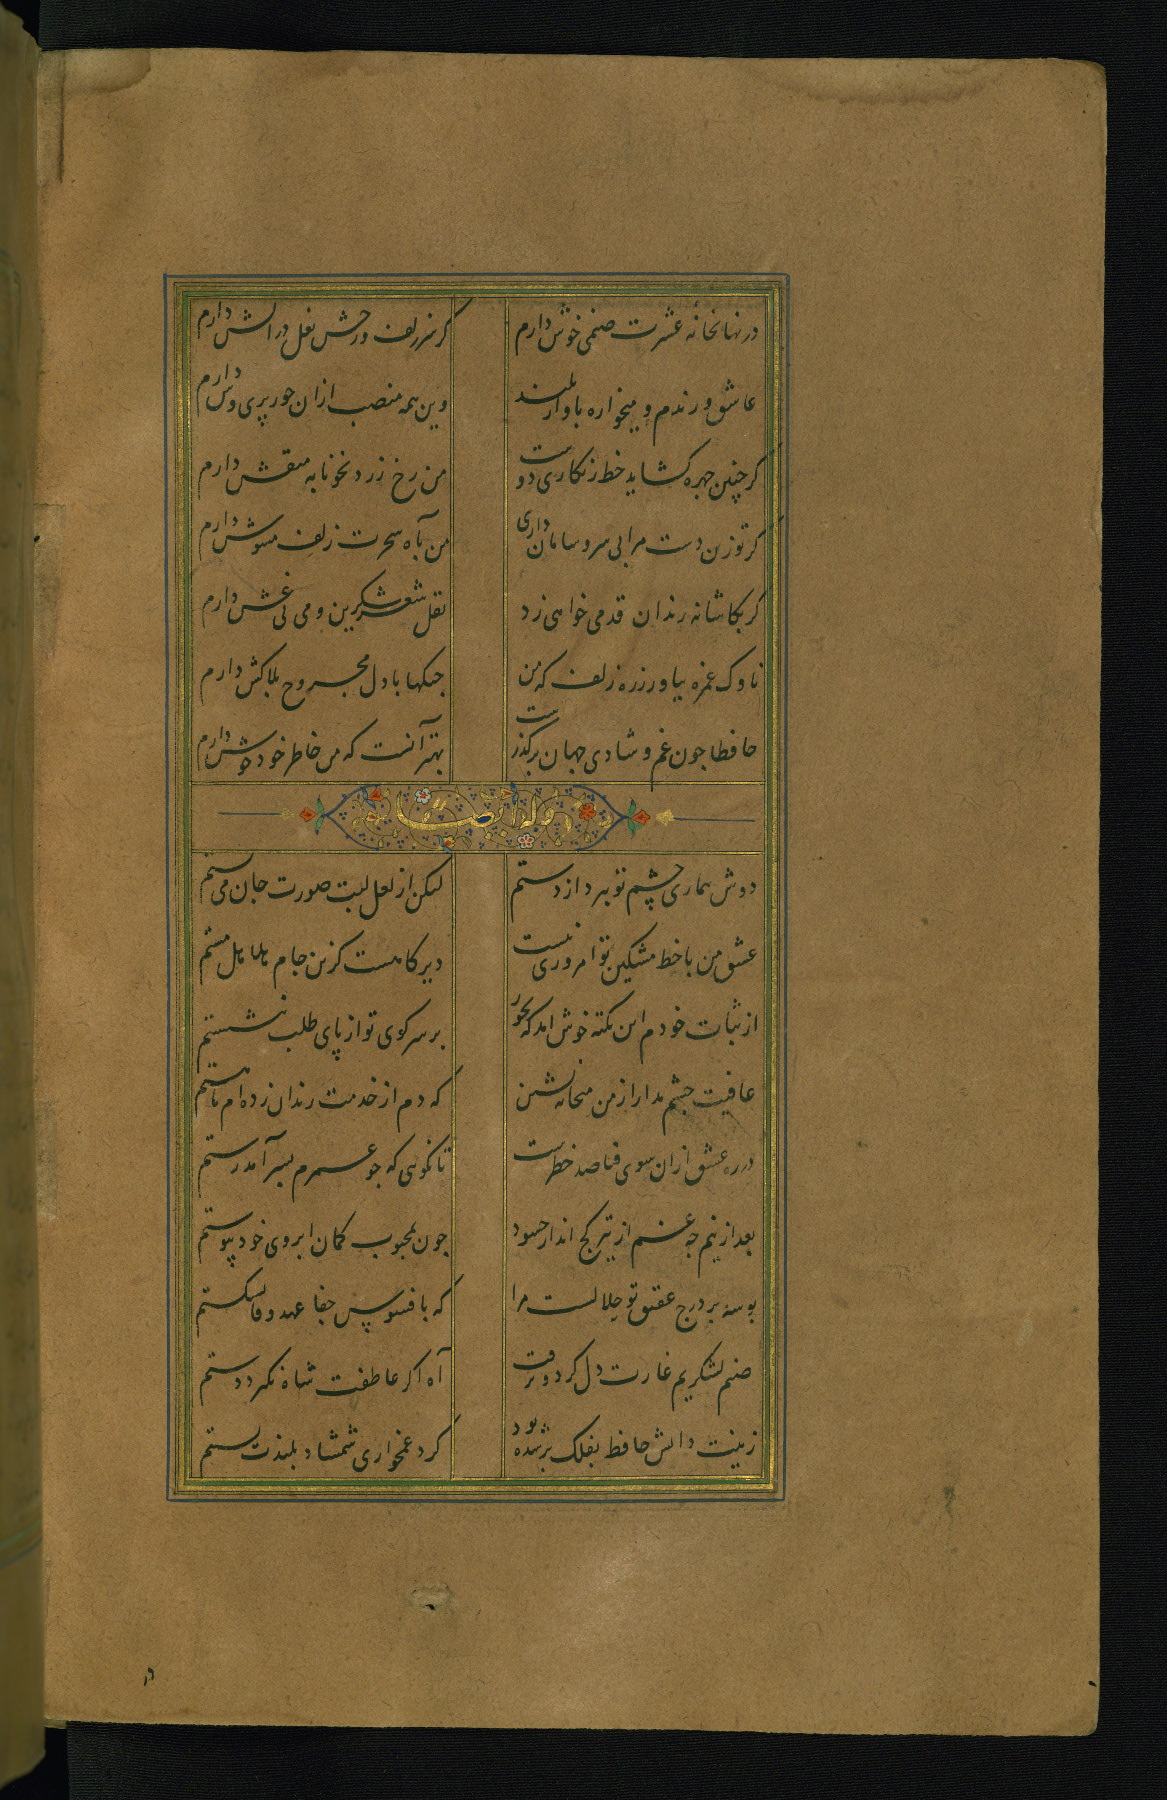 در نهانخانه عشرت صنمی خوش دارم
کز سر زلف و رخش نعل در آتش دارم
عاشق و رندم و میخواره باواز بلند
وین همه منصب ازان حور پری وش دارم
کر چنین چهره کشاید خط زنکاری دوست
من رخ زرد بخونابه منقش دارم
کر توزین دست مرا بی سر و سامان داری
من بآه سحرت زلف مشوش دارم
کر بکاشانه رندان قدمی خواهی زد
نقل شعر شکرین و می بی غش دارم
ناوک غمزه بیاور زره زلف که من
جنکها با دل مجروح بلاکش دارم
حافظا چون غم و شادی جهان برکذرست
بهتر آنست که من خاطر خود خوش دارم
وله ایضا
دوش بیماری چشم تو ببرد از دستم
لیکن از لعل لبت صورت جان می بستم
عشق من با خط مشکین تو امروزی نیست
دیر کاهست کزین جام هلالی مستم
از ثبات خودم این نکته خوش آمد که بجور
بر سر کوی تو از پای طلب ننشستم
عافیت چشم مدار از من میخانه نشین
که دم از خدمت رندان زده ام تا هستم
در ره عشق ازان سوی فنا صد خطرست
تا نکویی که چو عمرم بسر آمد رستم
بعد ازینم چه غم از تیر کج انداز حسود
چون بمحبوب کمان ابروی خود پیوستم
بوسه بر درج عقیق تو حلالست مرا
که بافسوس جفا عهد وفا نشکستم
صنم لشکریم غارت دل کرد و برفت
آه اکر عاطفت شاه نکیرد دستم
زینت دانش حافظ بفلک بر شده بود
کرد غمخواری شمشاد بلندت پستم